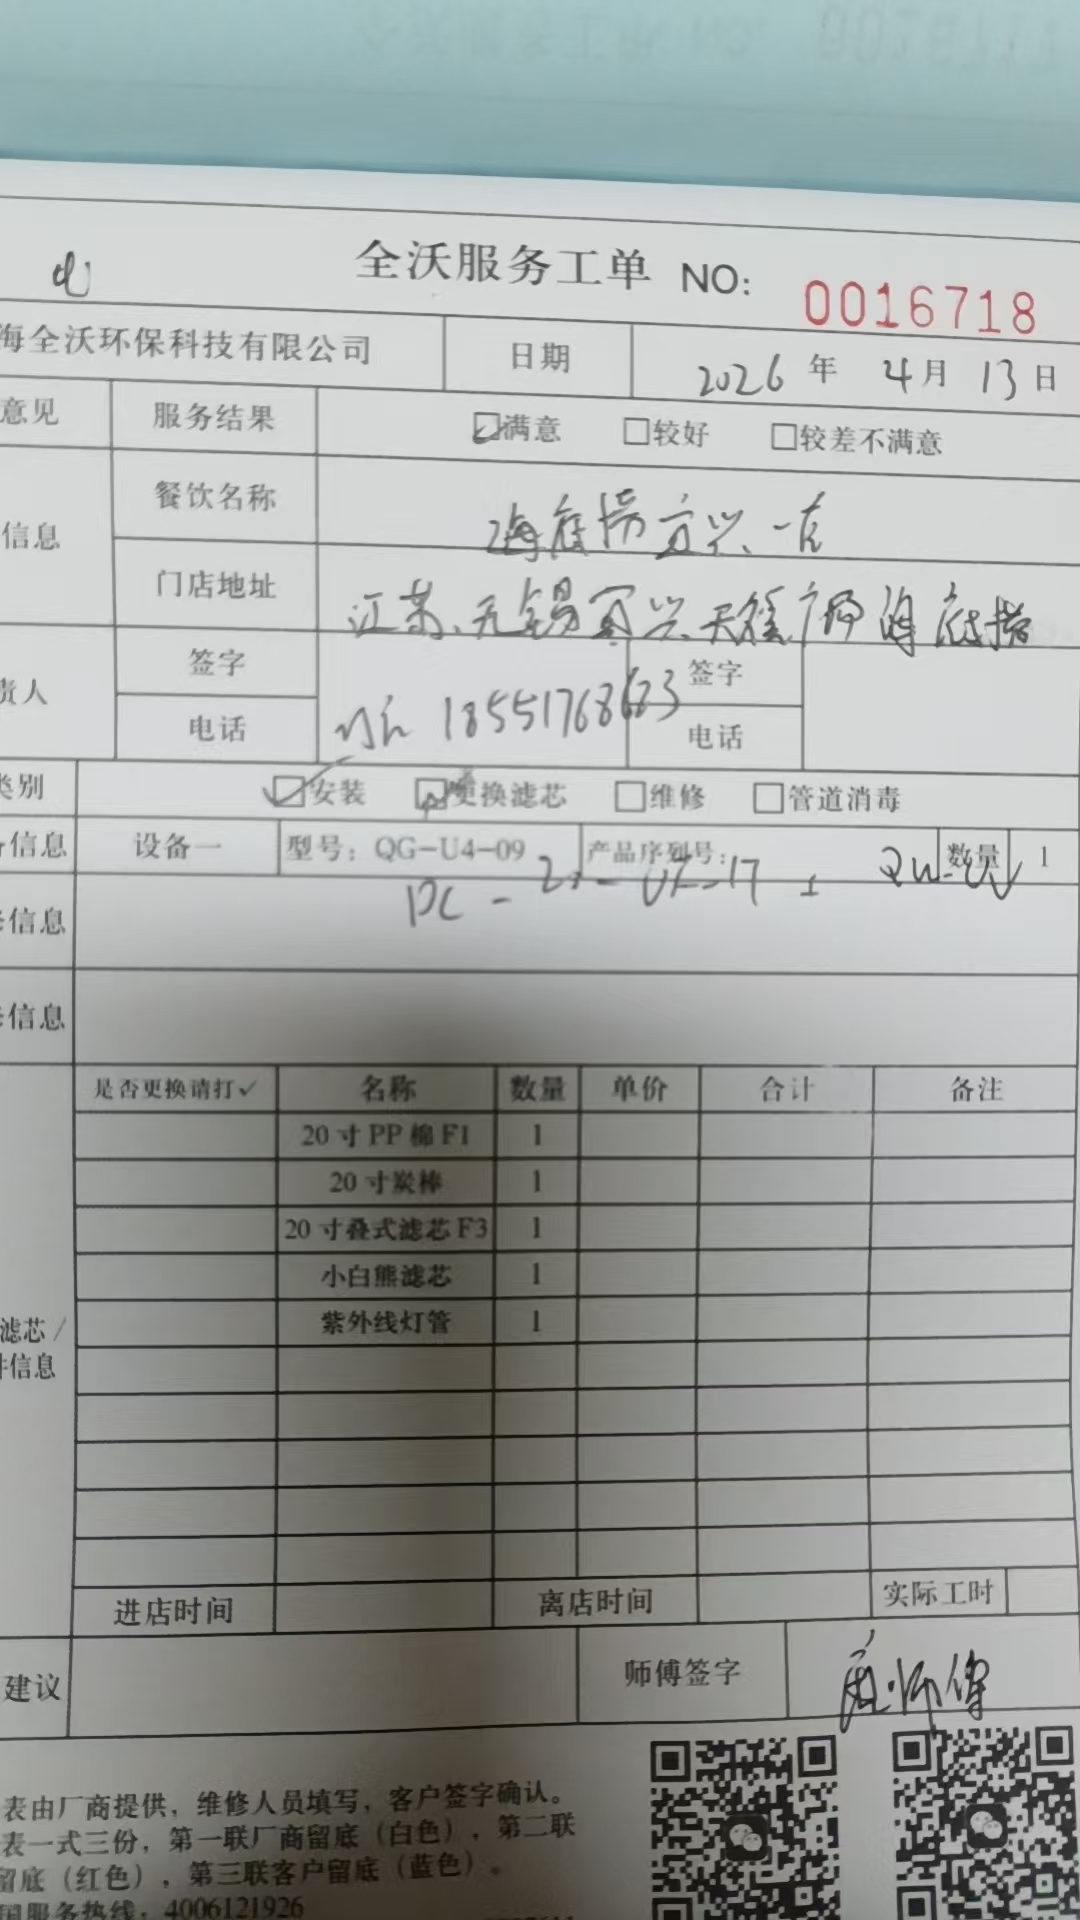 全沃服务工单 NO: 0016718
海全沃环保科技有限公司 日期 2026年4月13日
意见 服务结果 ☑满意 □较好 □较差不满意
信息 餐饮名称 海底捞宜兴一店
门店地址 江苏无锡宜兴天 海底捞
责人 签字 签字
电话 18551768683 电话
类别 ☑安装 ☑更换滤芯 □维修 □管道消毒
信息 设备一 型号：QG-U4-09 产品序列号： 数量 1
信息
信息
是否更换请打✓ 名称 数量 单价 合计 备注
20寸PP棉F1 1
20寸炭棒 1
20寸叠式滤芯F3 1
小白熊滤芯 1
紫外线灯管 1
滤芯/
件信息
进店时间 离店时间 实际工时
建议 师傅签字 师傅
表由厂商提供，维修人员填写，客户签字确认。
表一式三份，第一联厂商留底（白色），第二联
留底（红色），第三联客户留底（蓝色）。
国服务热线：4006121926